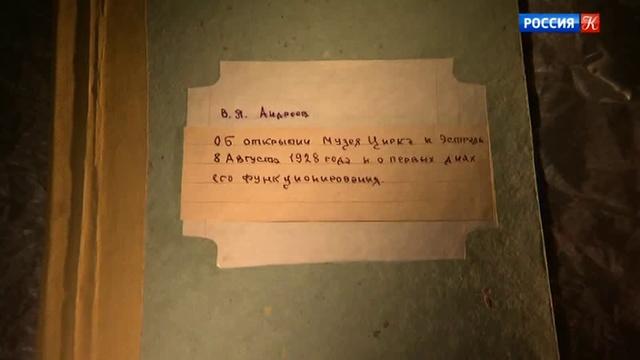 РОССИЯ К
В.Я. Андреев
Об открытии музея Цирка и Эстрады
8 Августа 1928 года и о первых днях
его функционирования.